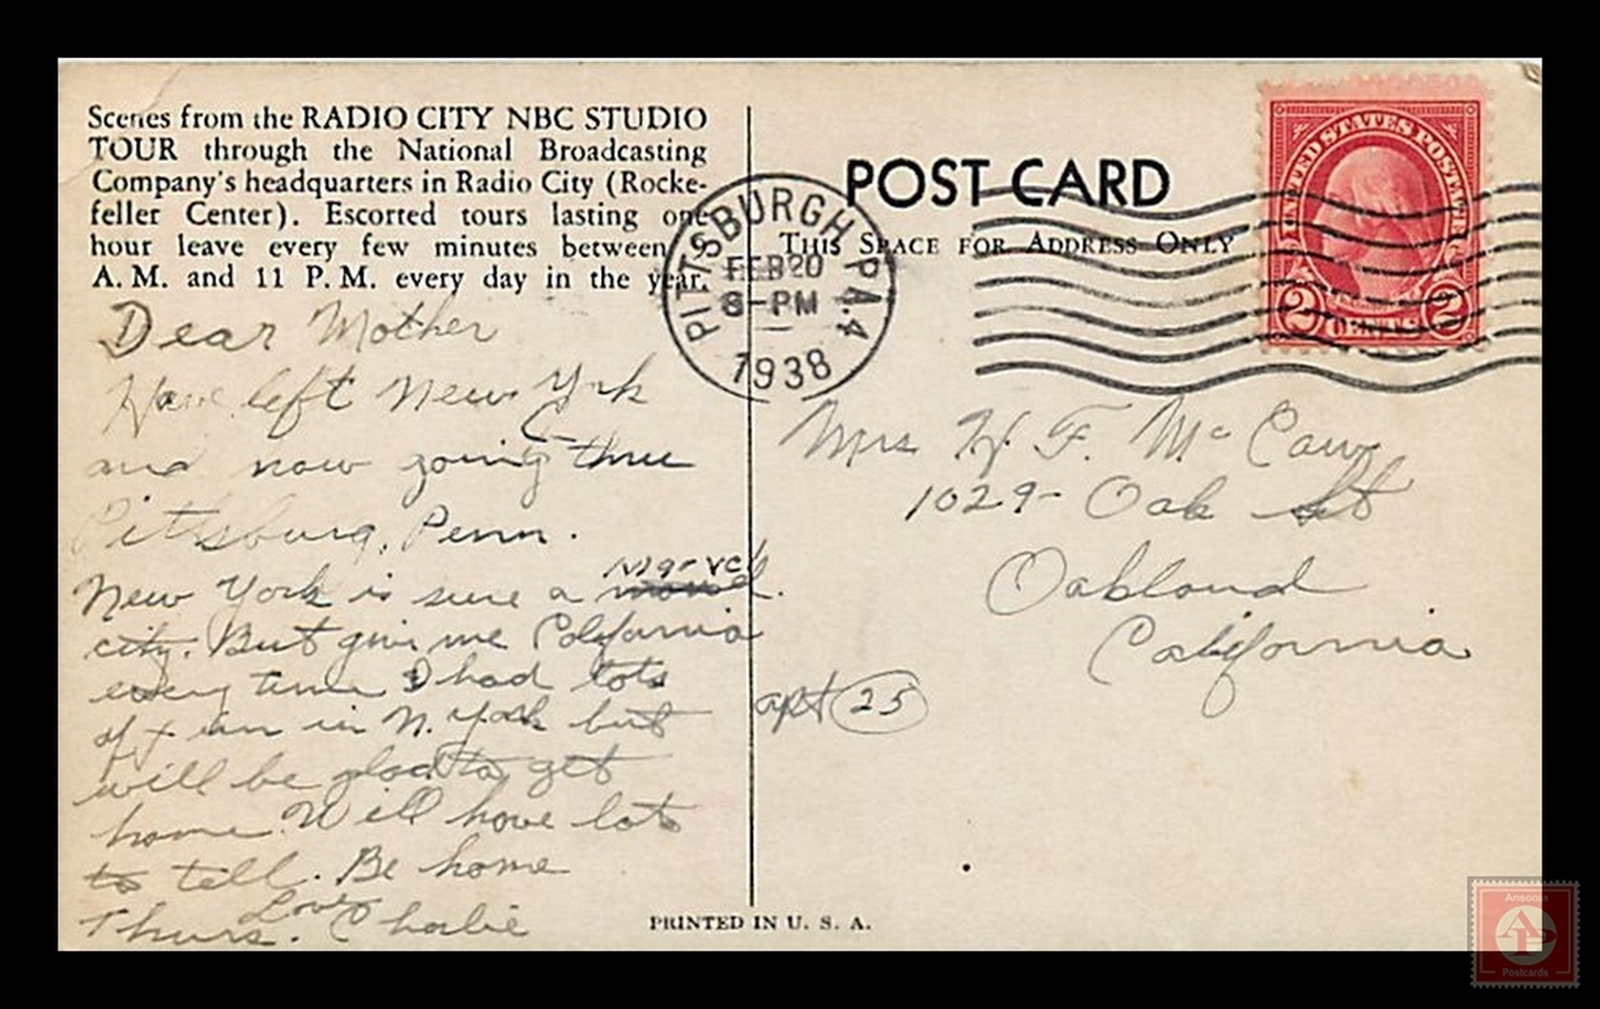 Scenes from the RADIO CITY NBC STUDIO
TOUR through the National Broadcasting
Company's headquarters in Radio City (Rocke-
feller Center). Escorted tours lasting one
hour leave every few minutes between 9
A. M. and 11 P. M. every day in the year.
Dear Mother
Have left New York
and now going thru
Pittsburg, Penn.
New York is sure a marvel
city. But give me California
every time I had lots
of fun in N. York but
will be glad to get
home. Will have lots
to tell. Be home
Thurs. Love Charlie
POST CARD
THIS SPACE FOR ADDRESS ONLY
PITTSBURGH PA. 4
FEB 20
8-PM
1938
UNITED STATES POSTAGE
2 CENTS 2
Mrs H. F. McCaw
1029- Oak St
Oakland
California
apt 25
PRINTED IN U. S. A.
Ansonia
AP
Postcards